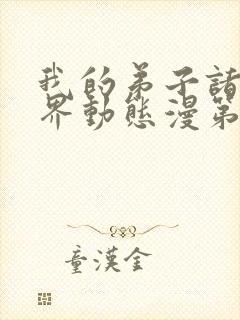 我的弟子諸
界動態漫第
童漢金